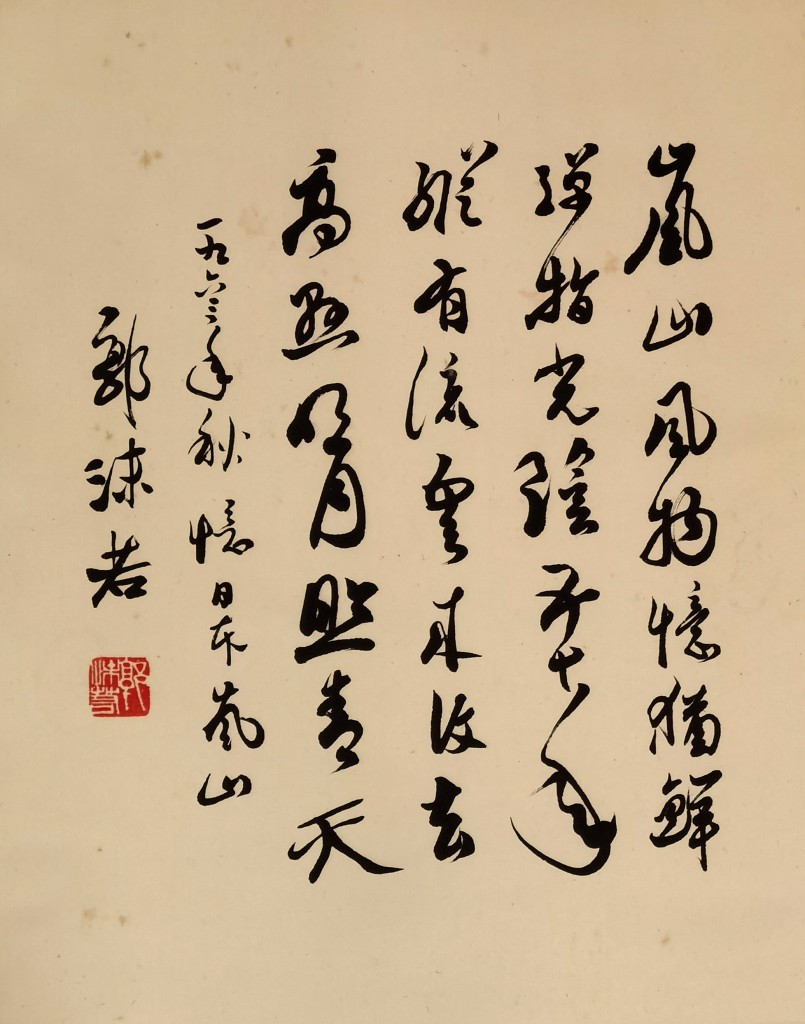 嵐山風物憶猶鮮
彈指光陰五十年
縱有流雲來復去
高懸明月照青天
一九六三年秋憶日本嵐山
郭沫若
郭沫若